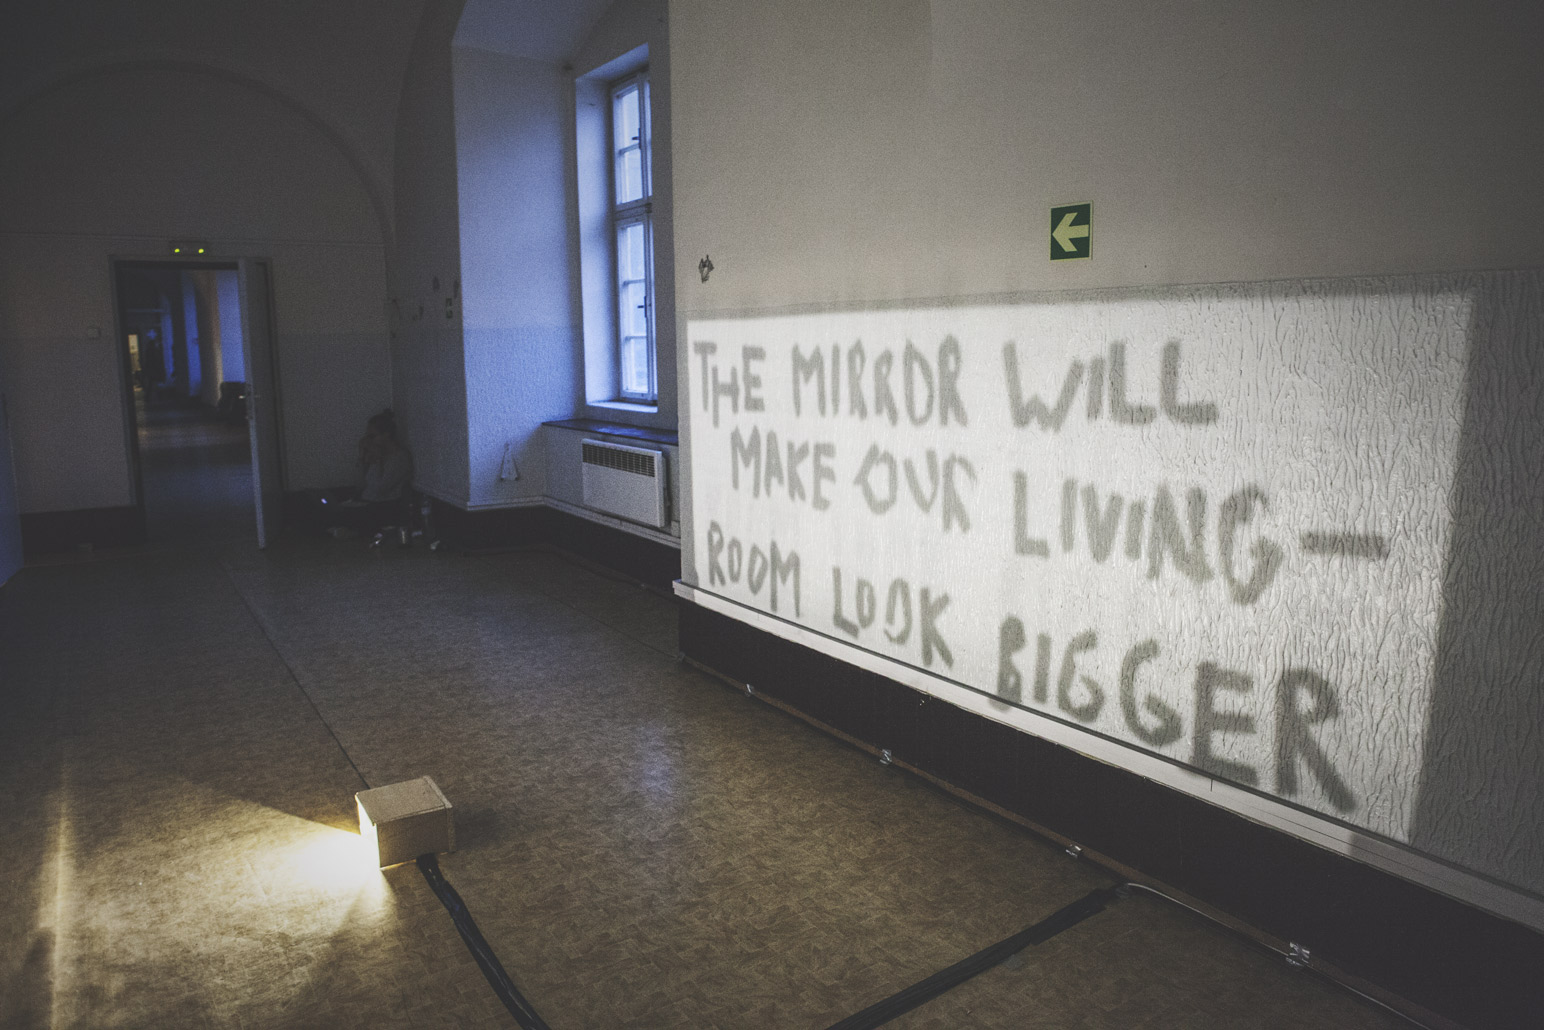 THE MIRROR WILL
MAKE OUR LIVING-
ROOM LOOK BIGGER